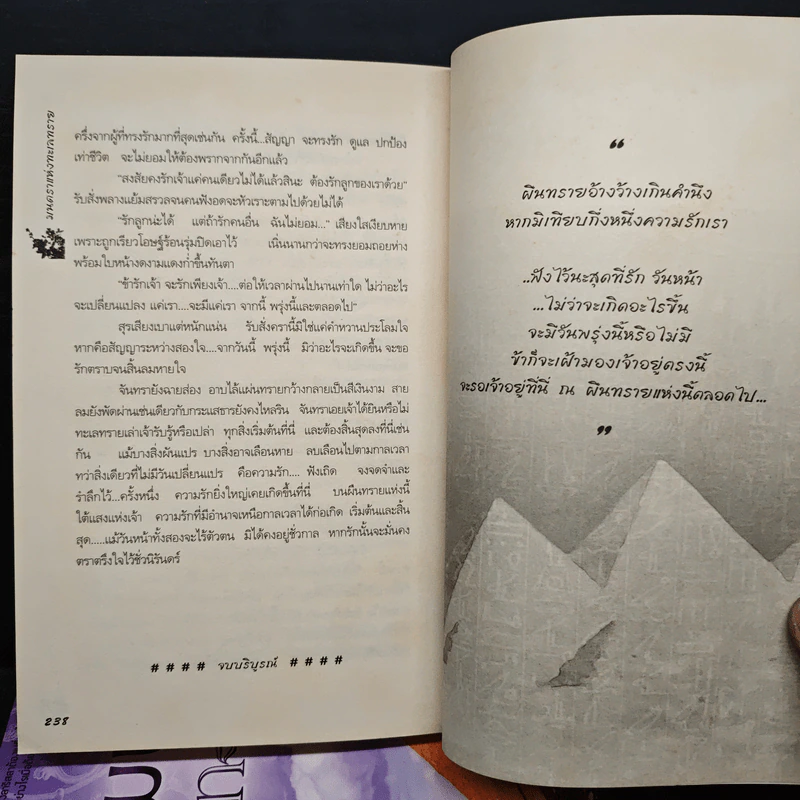 มนตราแห่งทะเลทราย
ครึ่งจากผู้ที่ทรงรักมากที่สุดเช่นกัน ครั้งนี้...สัญญา จะทรงรัก ดูแล ปกป้อง
เท่าชีวิต จะไม่ยอมให้ต้องพรากจากกันอีกแล้ว
"สงสัยคงรักเจ้าแค่คนเดียวไม่ได้แล้วสินะ ต้องรักลูกของเราด้วย"
รับสั่งพลางแย้มสรวลจนคนฟังอดจะหัวเราะตามไปด้วยไม่ได้
"รักลูกน่ะได้ แต่ถ้ารักคนอื่น ฉันไม่ยอม..." เสียงใสเงียบหาย
เพราะถูกเรียวโอษฐ์ร้อนรุ่มปิดเอาไว้ เนิ่นนานกว่าจะทรงยอมถอยห่าง
พร้อมใบหน้างดงามแดงก่ำขึ้นทันตา
"ข้ารักเจ้า จะรักเพียงเจ้า....ต่อให้เวลาผ่านไปนานเท่าใด ไม่ว่าอะไร
จะเปลี่ยนแปลง แค่เรา....จะมีแค่เรา จากนี้ พรุ่งนี้และตลอดไป"
สุรเสียงเบาแต่หนักแน่น รับสั่งครานี้มิใช่แค่คำหวานประโลมใจ
หากคือสัญญาระหว่างสองใจ....จากวันนี้ พรุ่งนี้ มิว่าอะไรจะเกิดขึ้น จะขอ
รักตราบจนสิ้นลมหายใจ
จันทรายังฉายส่อง อาบไล้แผ่นทรายกว้างกลายเป็นสีเงินงาม สาย
ลมยังพัดผ่านเช่นเดียวกับกระแสธารยังคงไหลริน จันทราเอยเจ้าได้ยินหรือไม่
ทะเลทรายเล่าเจ้ารับรู้หรือเปล่า ทุกสิ่งเริ่มต้นที่นี่ และต้องสิ้นสุดลงที่นี่เช่น
กัน แม้บางสิ่งผันแปร บางสิ่งอาจเลือนหาย ลบเลือนไปตามกาลเวลา
ทว่าสิ่งเดียวที่ไม่มีวันเปลี่ยนแปร คือความรัก.... ฟังเถิด จงจดจำและ
รำลึกไว้...ครั้งหนึ่ง ความรักยิ่งใหญ่เคยเกิดขึ้นที่นี่ บนผืนทรายแห่งนี้
ใต้แสงแห่งเจ้า ความรักที่มีอำนาจเหนือกาลเวลาได้ก่อเกิด เริ่มต้นและสิ้น
สุด.....แม้วันหน้าทั้งสองจะไร้ตัวตน มิได้คงอยู่ชั่วกาล หากรักนั้นจะมั่นคง
ตราตรึงใจไว้ชั่วนิรันดร์
# # # # จบบริบูรณ์ # # # #
238
"
ผืนทรายอ้างว้างเกินคำนึง
หากมิเทียบกึ่งหนึ่งความรักเรา
..ฟังไว้นะสุดที่รัก วันหน้า
...ไม่ว่าจะเกิดอะไรขึ้น
จะมีวันพรุ่งนี้หรือไม่มี
ข้าก็จะเฝ้ามองเจ้าอยู่ตรงนี้
จะรอเจ้าอยู่ที่นี่ ณ ผืนทรายแห่งนี้ตลอดไป...
"